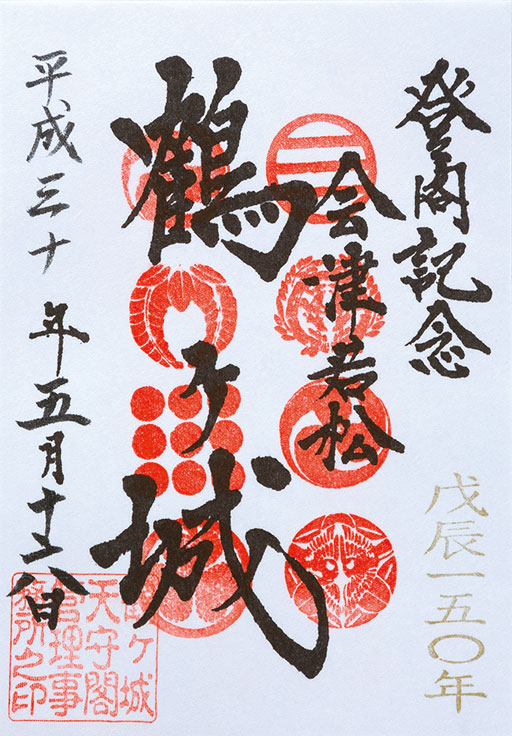 登閣記念
戊辰一五〇年
会津若松
鶴ヶ城
平成三十年五月十
鶴ヶ城
天守閣
管理事
務所之印